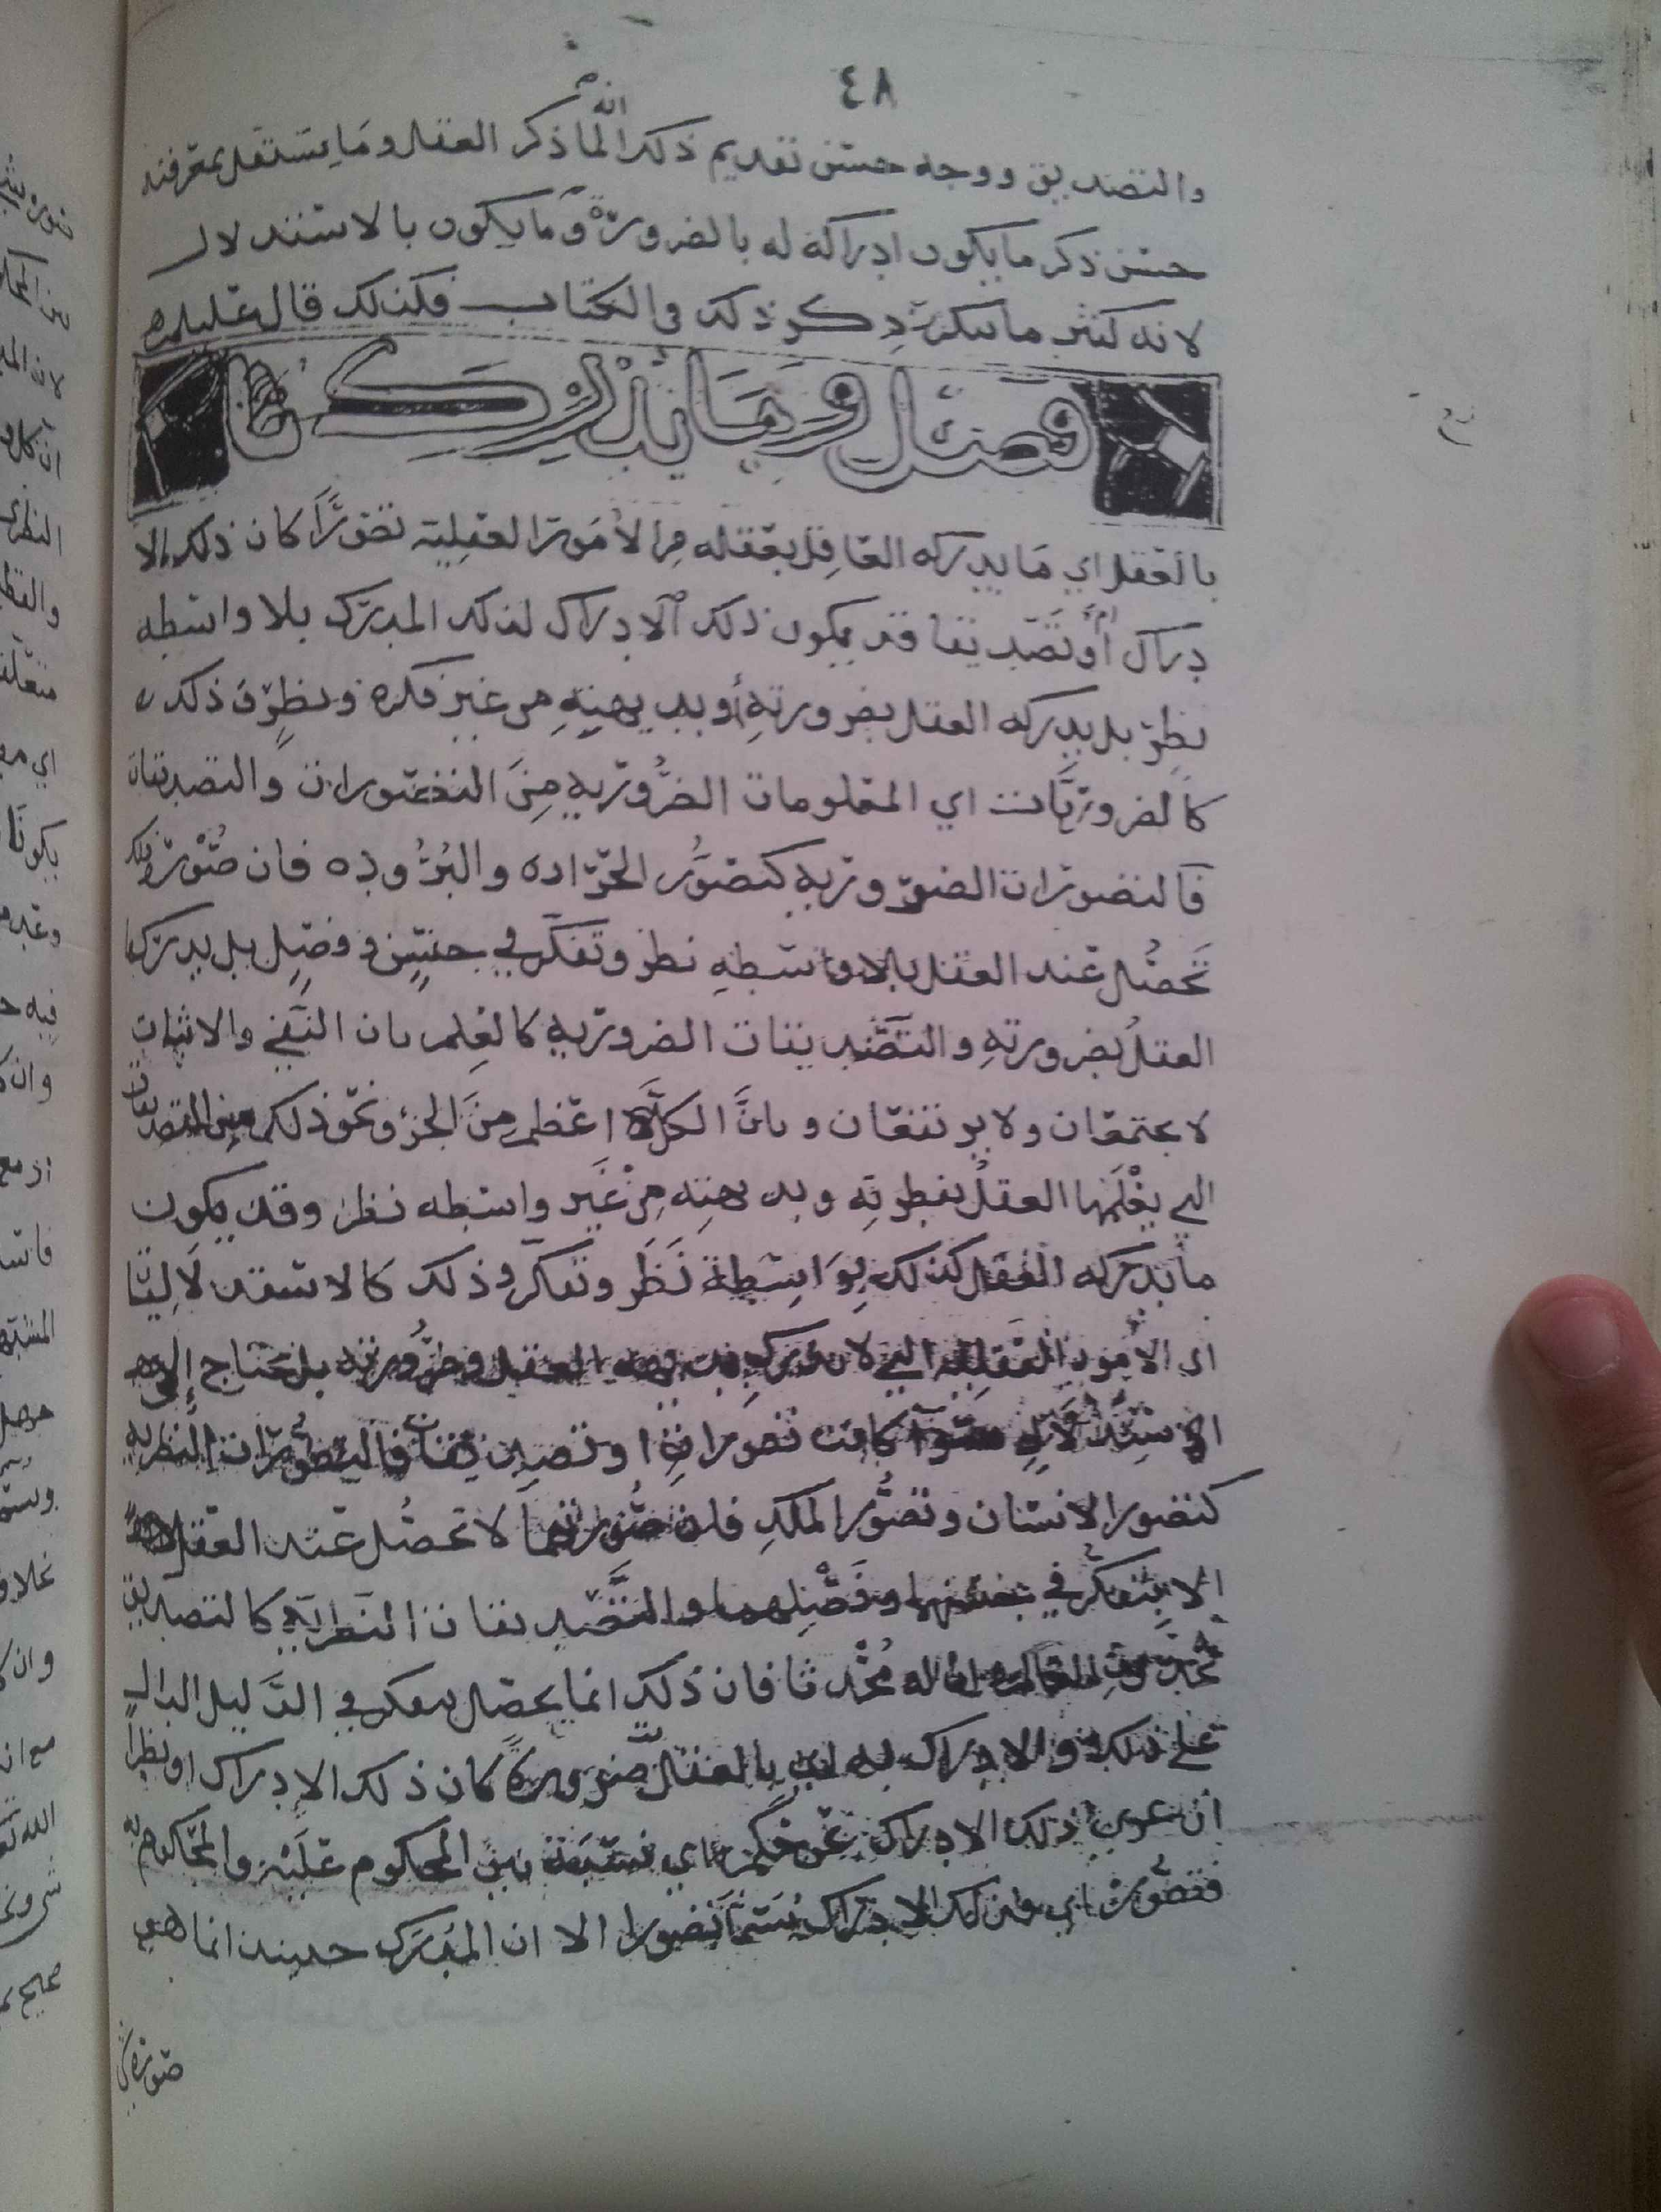 ٤٨
والتصديق ووجه حسن تقديم ذلك انه لما ذكر العقل وما يستقل بمعرفته
حسن ذكر ما يكون ادراكه له بالضرورة وما يكون بالاستدلال
لانه كثير ما يتكرر ذكر ذلك في الكتاب فلذلك قال عليلم
فصل وما يدرك
بالعقل اي ما يدركه العاقل بعقله من الامور العقلية تصورًا كان ذلك الا
دراك أو تصديقا قد يكون ذلك الادراك لذلك المدرك بلا واسطه
نظر بل يدركه العقل بضرورته أو ببديهته من غير فكره ونظر وذلك
كالضروريات اي المعلومات الضروريه من التصورات والتصديقات
فالتصورات الضروريه كتصور الحراره والبروده فان صورة ذلك
تحصل عند العقل بلا واسطه نظر وتفكر في جنس وفصل بل يدركها
العقل بضرورته والتصديقات الضروريه كالعلم بان النفي والاثبات
لا يجتمعان ولا يرتفعان وبان الكل اعظم من الجزء ونحو ذلك من التصديقات
التي يعلمها العقل بفطرته وبديهته من غير واسطه نظر وقد يكون
ما يدركه العقل كذلك بواسطة نظر وتفكر وذلك كالاستدلاليات
اي الامور العقليه التي لا تدرك ببديهه العقل وضرورته بل تحتاج إلى
الاستدلال سوآ كانت تصورات او تصديقات فالتصورات النظريه
كتصور الانسان وتصور الملك فان صورتهما لا تحصل عند العقل
الا بتفكر في جنسهما وفصلهما والتصديقات النظريه كالتصديق
بحدوث العالم وان له مُحْدِثا فان ذلك انما يحصل بتفكر في الدليل الدال
على ذلك والادراك به اي بالعقل ضرورة كان ذلك الادراك او نظراً
ان عري ذلك الادراك عن حكم اي نسبة بين المحكوم عليه والمحكوم به
فتصور اي فذلك الادراك يسما تصورا الا ان المدرك حينئذ انما هي
صورة